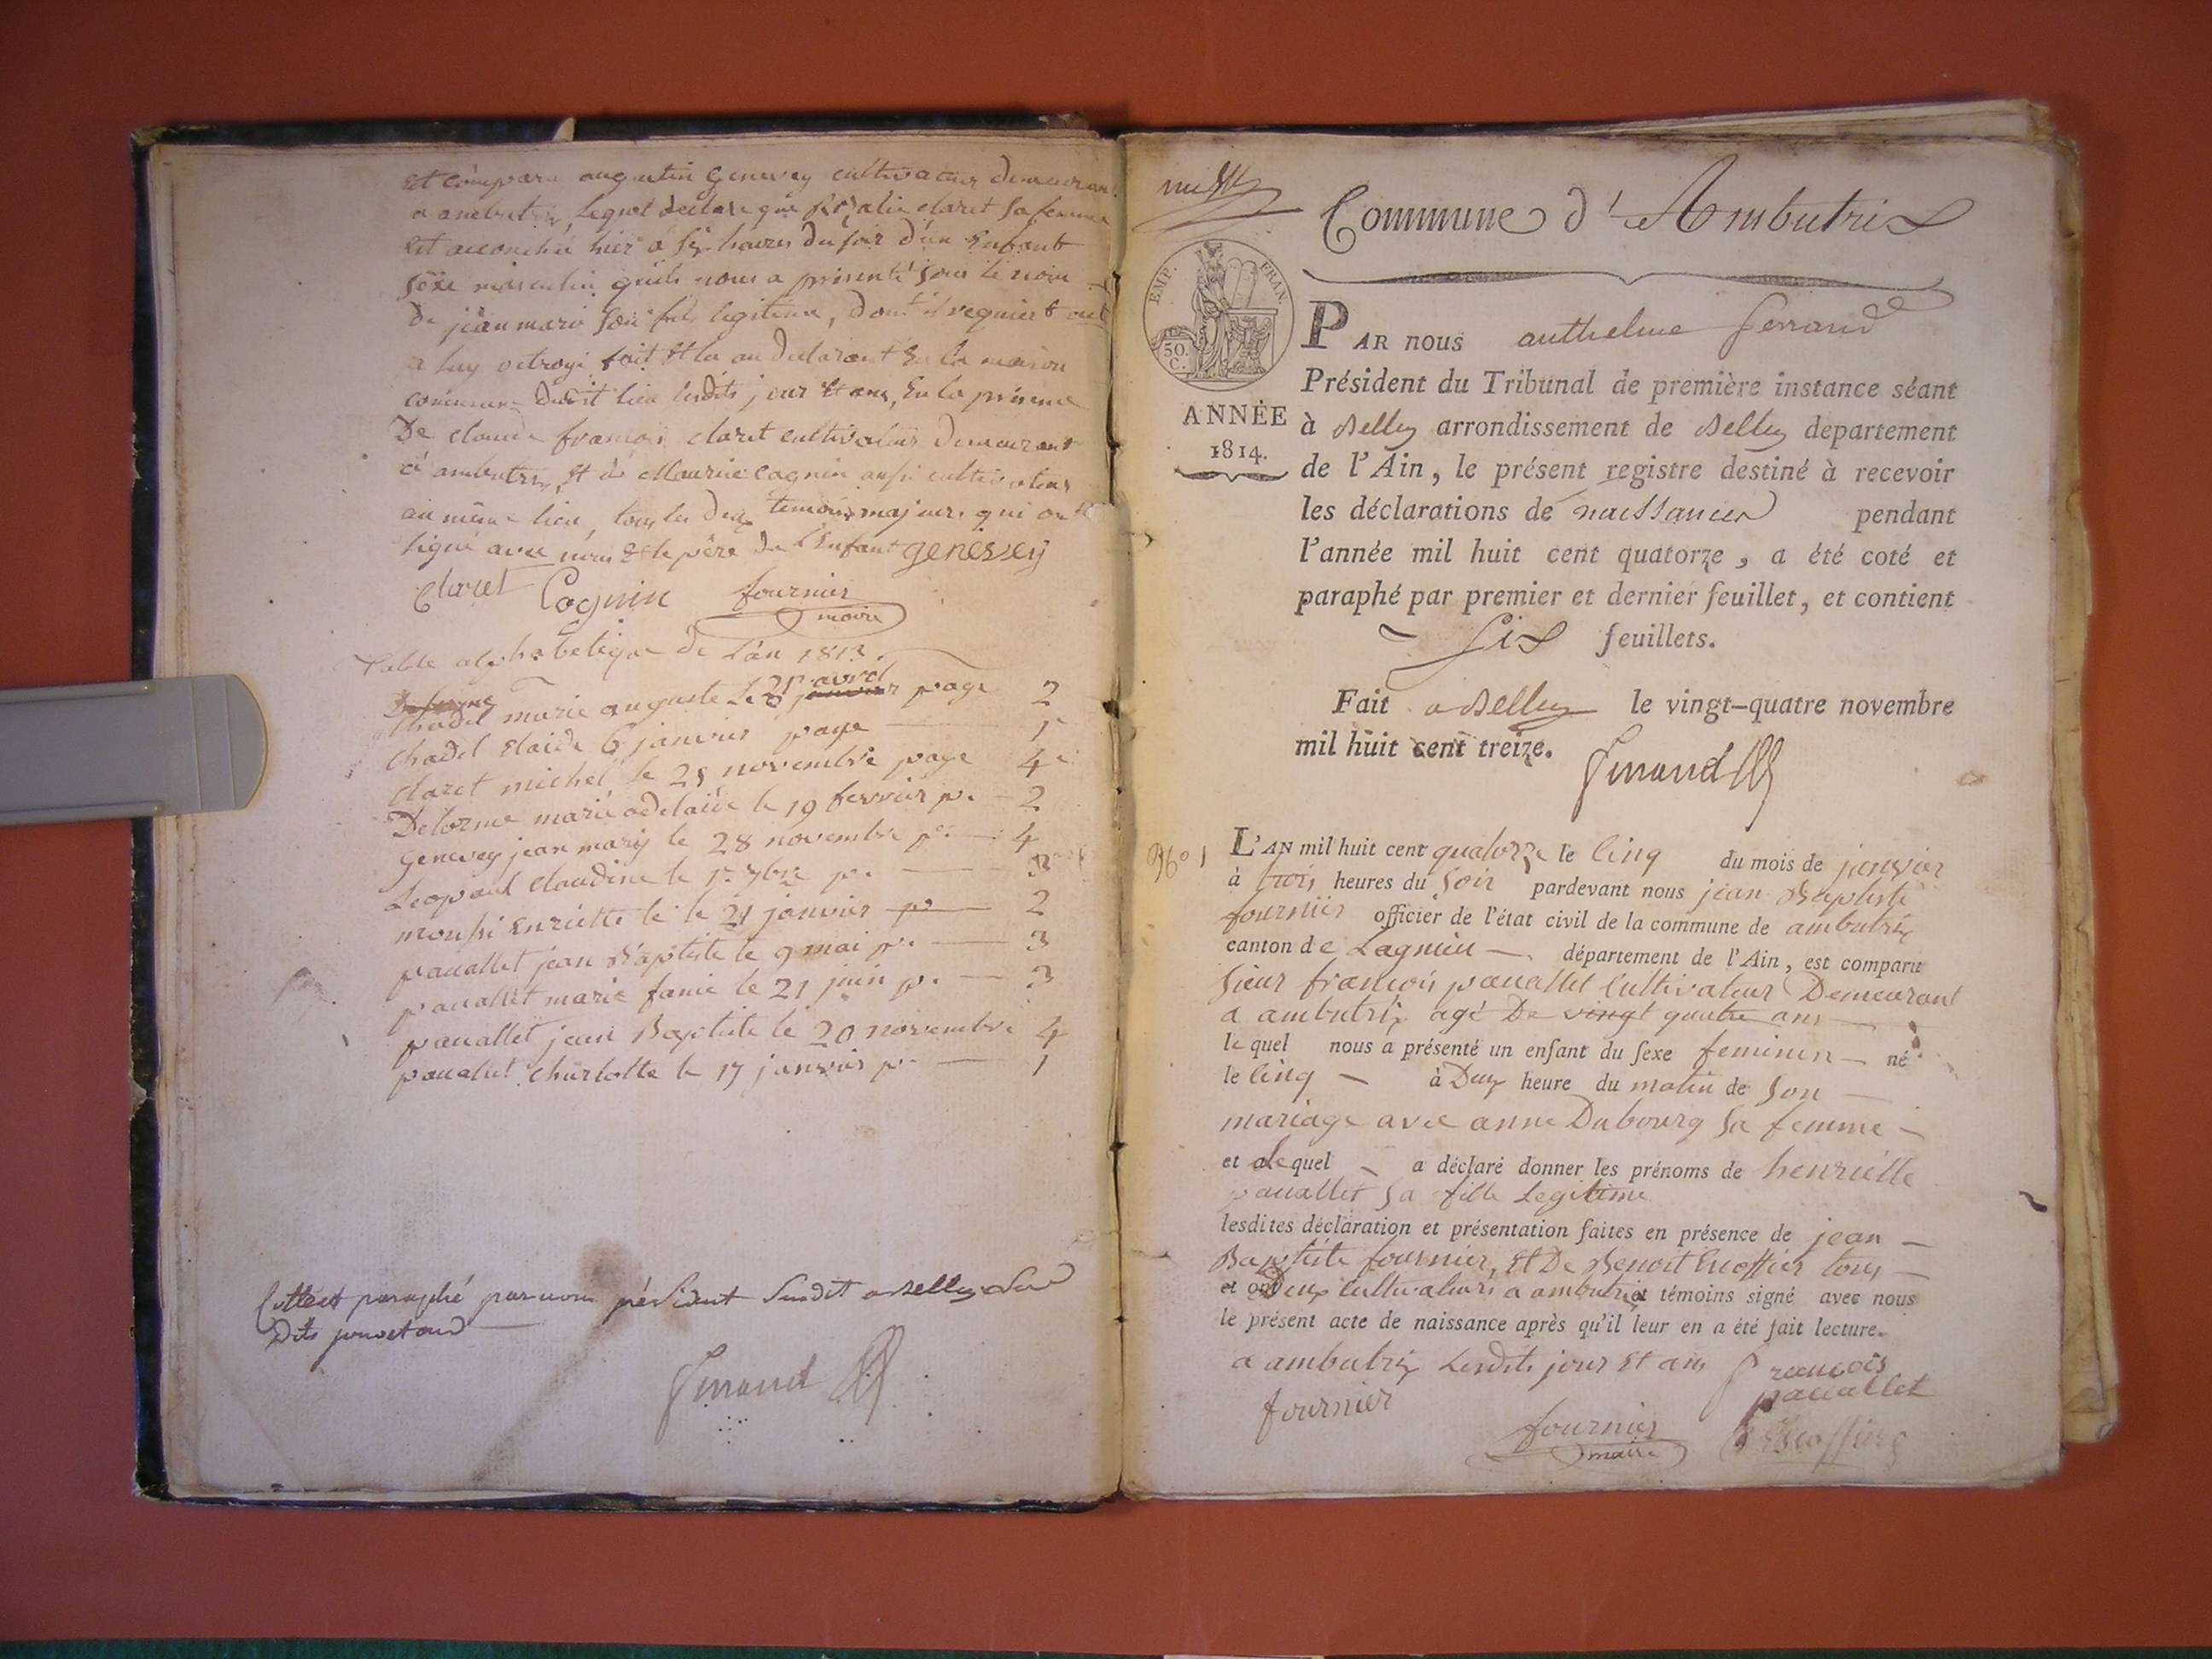 Est comparu augustin Genevey cultivateur demeurant
a ambutrix, lequel declare que Rosalie claret sa femme
est accouchée hier à six heures du soir d'un Enfant
sexe masculin quil nous a présenté sous le nom
de jean marie son fils legitime, dont il requiert acte
a luy octroyé fait et lu au declarant En la maison
commune dudit lieu lesdits jour et ans, En la présence
De claude françois claret cultivateur demeurant
à ambutrix, et de Maurice Cagnin aussi cultivateur
au même lieu, tous les deux temoins majeurs qui ont
signé avec nous et le père de l'enfant genevey
Claret Cagnin fournier
maire
Table alphabetique de L'an 1813.
chadel marie auguste Le avril janvier page 2
chadel Elaide 6 janvier page 1
claret michel le 25 novembre page 4e
Delorme marie adelaide le 19 fevrier p. 2
genevey jean mary le 28 novembre p. 4
Leopard claudine le 1er 7bre p. 3
le 21 janvier p 2
pauallet jean Baptiste le 9 mai p. 3
pauallet marie fanie le 21 juin p. 3
pauallet jean Baptiste le 20 novembre 4
pauallet charlotte le 17 janvier p 1
Cotté et paraphé par nous président susdit a Belley les
Dits jour et an
Ferrand
Commune d'Ambutrix
EMP. FRAN.
50. C.
ANNÉE
1814.
PAR nous anthelme ferrand
Président du Tribunal de première instance séant
à Belley arrondissement de Belley departement
de l'Ain, le présent registre destiné à recevoir
les déclarations de naissances pendant
l'année mil huit cent quatorze, a été coté et
paraphé par premier et dernier feuillet, et contient
six feuillets.
Fait a Belley le vingt-quatre novembre
mil huit cent treize.
Ferrand
No 1 L'AN mil huit cent quatorze le cinq du mois de janvier
à trois heures du soir pardevant nous jean Baptiste
fournier officier de l'état civil de la commune de ambutrix
canton de Lagnieu département de l'Ain, est comparu
sieur françois pauallet cultivateur Demeurant
a ambutrix agé De vingt quatre ans
lequel nous a présenté un enfant du sexe feminin né
le cinq à Deux heure du matin de son
mariage avec anne Dubourg sa femme
et alequel a déclaré donner les prénoms de henriette
pauallet sa fille Legitime
lesdites déclaration et présentation faites en présence de jean
Baptiste fournier, Et De Benoit Escoffier tous
et ont Deux cultivateurs a ambutrix témoins signé avec nous
le présent acte de naissance après qu'il leur en a été fait lecture.
a ambutrix Lesdits jour Et ans françois
pauallet
fournier
fournier B Escoffier
maire